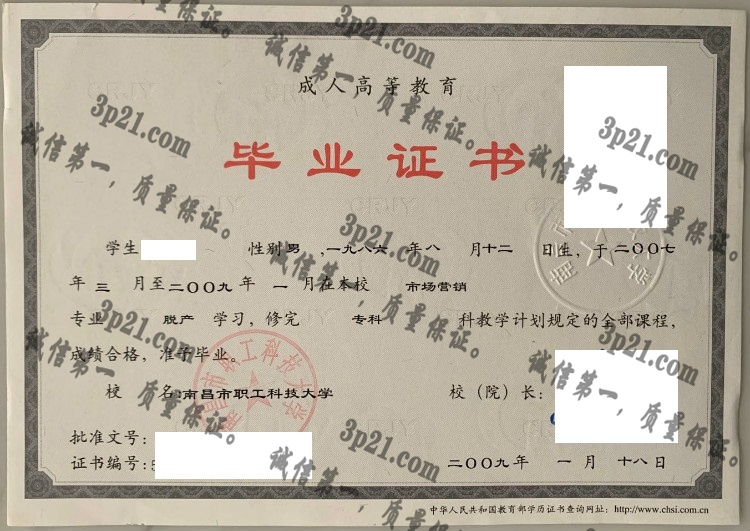 成人高等教育
毕业证书
学生 性别 男 ,一九八六 年 八 月 十二 日生，于 二〇〇七
年 三 月至 二〇〇九 年 一 月在本校 市场营销
专业 脱产 学习，修完 专科 科教学计划规定的全部课程，
成绩合格，准予毕业。
校 名:南昌市职工科技大学
校（院）长：
批准文号：
证书编号：
二〇〇九年 一 月 十八日
中华人民共和国教育部学历证书查询网址：http://www.chsi.com.cn
南昌市职工科技大学
3p21.com
诚信第一，质量保证。
3p21.com
诚信第一，质量保证。
3p21.com
诚信第一，质量保证。
3p21.com
诚信第一，质量保证。
3p21.com
诚信第一，质量保证。
3p21.com
诚信第一，质量保证。
3p21.com
诚信第一，质量保证。